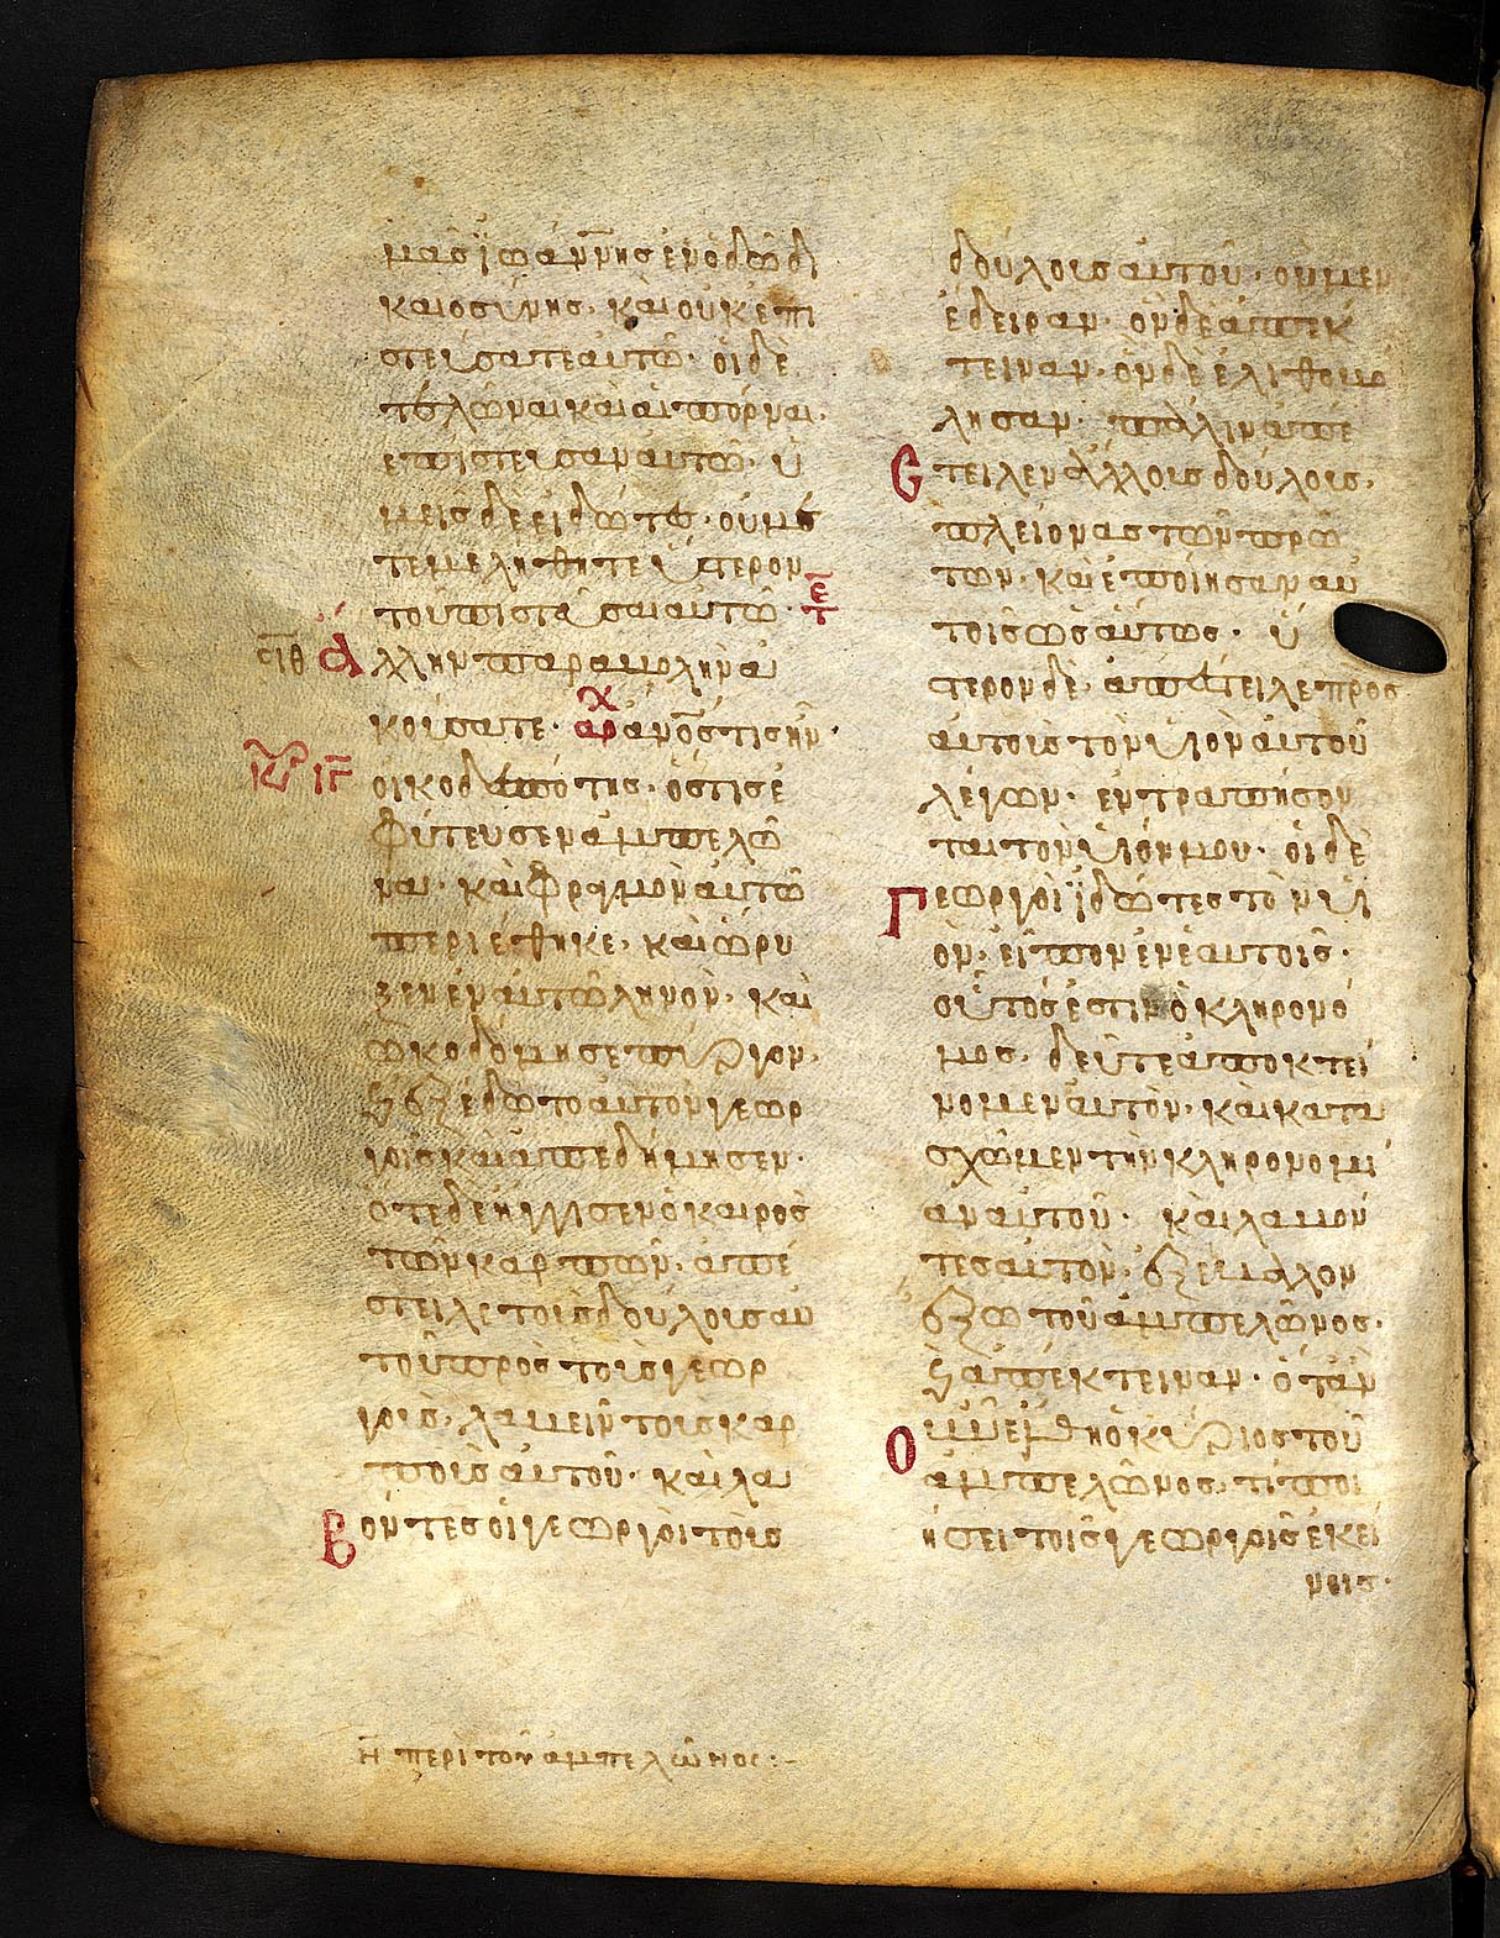 μᾶς ἰωάννης ἐν ὁδῶ δι
καιοσύνης· καὶ οὐκ ἐπι
στεύσατε αὐτῶ· οἱ δὲ
τελῶναι καὶ αἱ πόρναι·
ἐπίστευσαν αὐτῶ· ὑ
μεῖς δὲ εἰδότες· οὐ με
τεμελήθητε ὕστερον
τοῦ πιστεῦσαι αὐτῶ· τε
σιθ ἄλλην παραβολὴν ἀ
κούσατε· αρχ ἄνος τις ἦν·
κυ ιγ οἰκοδεσπότης· ὅστις ἐ
φύτευσεν ἀμπελῶ
να· καὶ φραγμὸν αὐτῶ
περιέθηκε· καὶ ὤρυ
ξεν ἐν αὐτῶ ληνόν· καὶ
ὠκοδόμησε πύργον·
καὶ ἐξέδωτο αὐτὸν γεωρ
γοῖς καὶ ἀπεδήμησεν·
ὅτε δὲ ἤγγισεν ὁ καιρὸς
τῶν καρπῶν· ἀπέ
στειλε τοὺς δούλους αὐ
τοῦ πρὸς τοὺς γεωρ
γοὺς· λαβεῖν τοὺς καρ
ποὺς αὐτοῦ· καὶ λα
βόντες οἱ γεωργοὶ τοὺς
δούλους αὐτοῦ· ὃν μὲν
ἔδειραν· ὃν δὲ ἀπέκ
τειναν· ὃν δὲ ἐλιθοβο
λησαν· πάλιν ἀπέ
ςτειλεν ἄλλους δούλους·
πλείονας τῶν πρώ
των· καὶ ἐποίησαν αὐ
τοῖς ὡσαύτως· ὕ
στερον δὲ· ἀπέστειλε πρὸς
αὐτοὺς τὸν υἱὸν αὐτοῦ
λέγων· ἐντραπήσον
ται τὸν υἱόν μου· οἱ δὲ
γεωργοὶ ἰδόντες τὸν υἱ
ὸν· εἶπον ἐν ἑαυτοῖς·
οὗτός ἐστιν ὁ κληρονό
μος· δεῦτε ἀποκτεί
νομεν αὐτὸν· καὶ κατά
σχωμεν τὴν κληρονομί
αν αὐτοῦ· καὶ λαβόν
τες αὐτὸν· ἐξέβαλλον
ἔξω τοῦ ἀμπελῶνος·
καὶ ἀπέκτειναν· ὅταν
οὖν ἔλθη ὁ κύριος τοῦ
ἀμπελῶνος· τί ποι
ήσει τοῖς γεωργοῖς ἐκεί
νοις·
η περὶ τοῦ ἀμπελῶνος:-